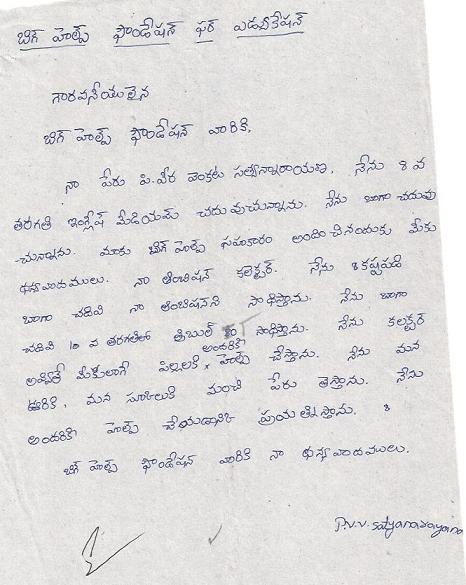 బిగ్ హెల్ప్ ఫౌండేషన్ ఫర్ ఎడ్యుకేషన్
గౌరవనీయులైన
బిగ్ హెల్ప్ ఫౌండేషన్ వారికి,
నా పేరు పి.వీర వెంకట సత్యన్నారాయణ, నేను 8 వ
తరగతి ఇంగ్లీష్ మీడియమ్ చదువుచున్నాను. నేను బాగా చదువు
-చున్నాను. మాకు బిగ్ హెల్ప్ సహకారం అందించినందుకు మీకు
ధన్యవాదములు. నా అంబిషన్ కలెక్టర్. నేను కష్టపడి
బాగా చదివి నా అంబిషన్‌ని సాధిస్తాను. నేను బాగా
చదివి 10 వ తరగతిలో త్రిబుల్ సాధిస్తాను. నేను కలక్టర్
అందరికి
అయ్యితే మీకులాగే పిల్లలకి x హెల్ప్ చేస్తాను. నేను మన
ఊరికి, మన స్కూలుకి మంచి పేరు తెస్తాను. నేను
అందరికి హెల్ప్ చేయడానికి ప్రయత్నిస్తాను. 8
బిగ్ హెల్ప్ ఫౌండేషన్ వారికి నా ధన్యవాదములు.
P.V.V. Satyanarayana